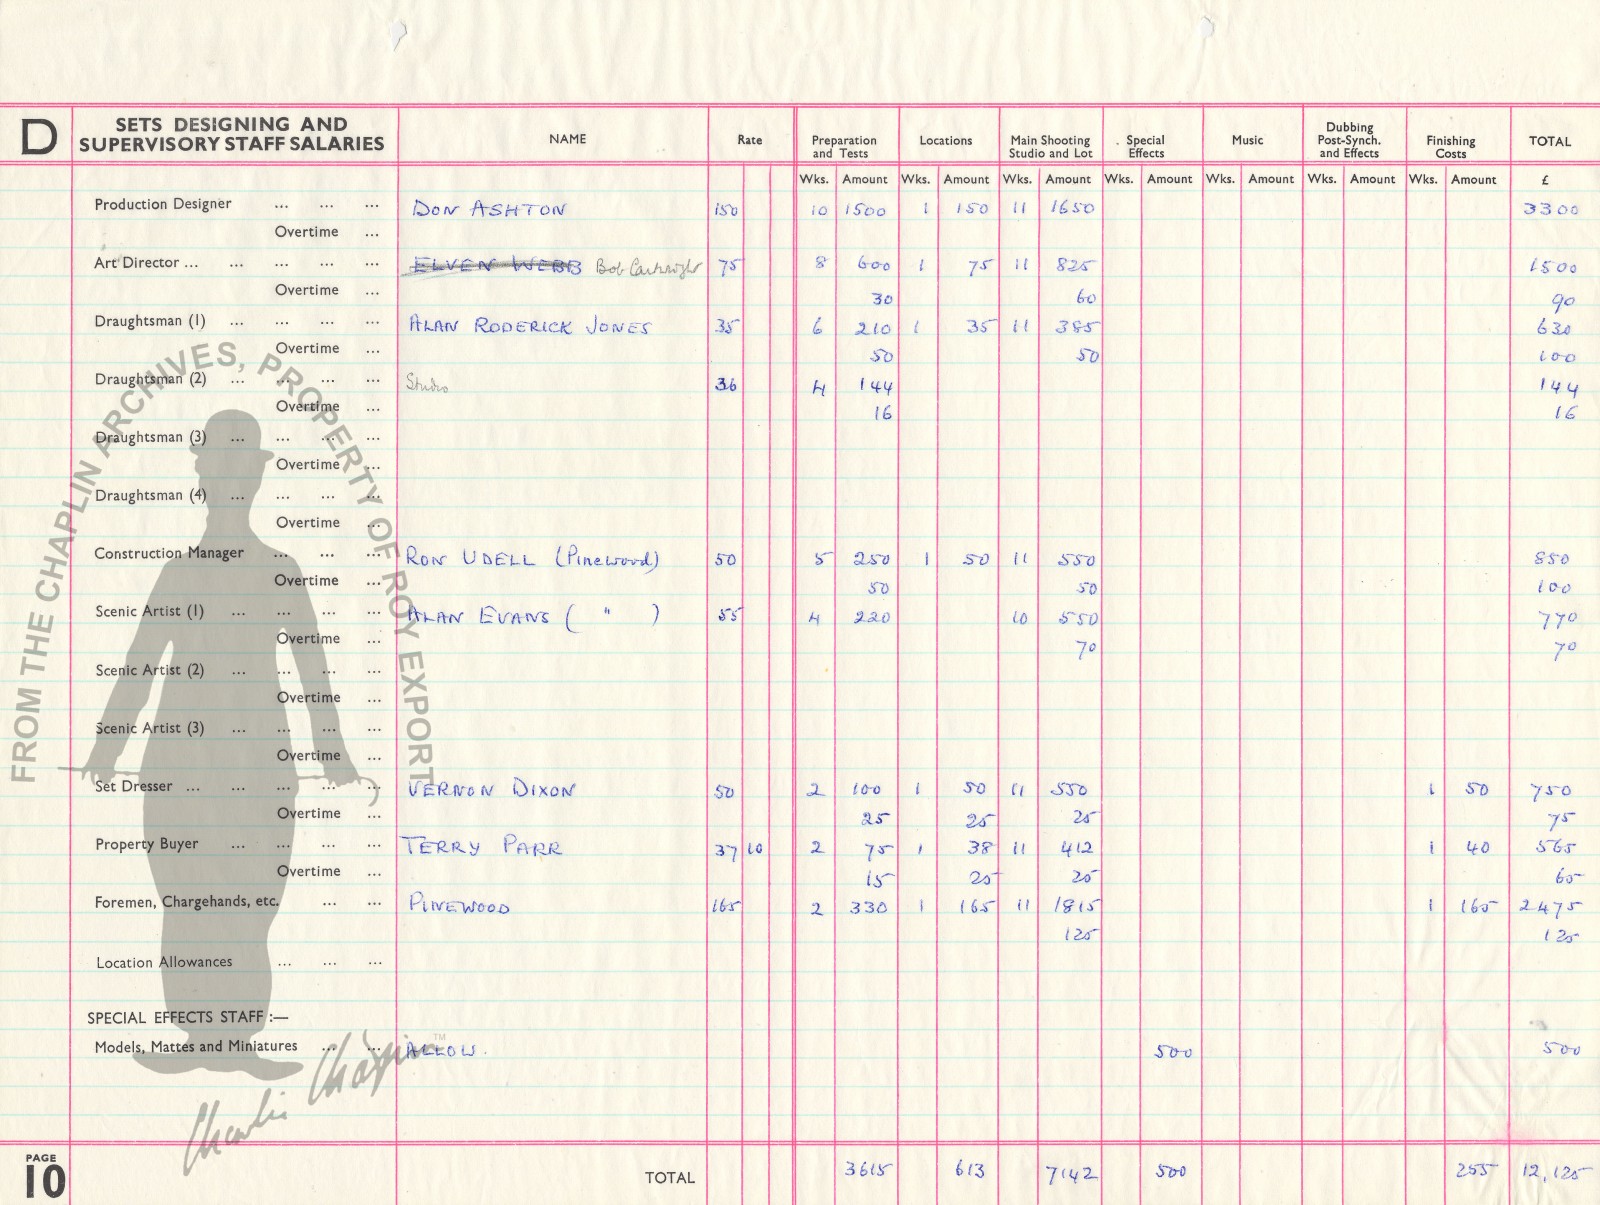 D SETS DESIGNING AND SUPERVISORY STAFF SALARIES NAME Rate Preparation and Tests Locations Main Shooting Studio and Lot Special Effects Music Dubbing Post-Synch. and Effects Finishing Costs TOTAL
Wks. Amount Wks. Amount Wks. Amount Wks. Amount Wks. Amount Wks. Amount Wks. Amount £
Production Designer ... ... ... DON ASHTON 150 10 1500 1 150 11 1650 3300
Overtime ...
Art Director ... ... ... ... ... ELVEN WEBB Bob Cartwright 75 8 600 1 75 11 825 1500
Overtime ... 30 60 90
Draughtsman (1) ... ... ... ... ALAN RODERICK JONES 35 6 210 1 35 11 385 630
Overtime ... 50 50 100
Draughtsman (2) ... ... ... ... Studio 36 4 144 144
Overtime ... 16 16
Draughtsman (3) ... ... ... ...
Overtime ...
Draughtsman (4) ... ... ... ...
Overtime ...
Construction Manager ... ... ... RON UDELL (Pinewood) 50 5 250 1 50 11 550 850
Overtime ... 50 50 100
Scenic Artist (1) ... ... ... ... ALAN EVANS ( " ) 55 4 220 10 550 770
Overtime ... 70 70
Scenic Artist (2) ... ... ... ...
Overtime ...
Scenic Artist (3) ... ... ... ...
Overtime ...
Set Dresser ... ... ... ... ... VERNON DIXON 50 2 100 1 50 11 550 1 50 750
Overtime ... 25 25 25 75
Property Buyer ... ... ... ... TERRY PARR 37 10 2 75 1 38 11 412 1 40 565
Overtime ... 15 25 25 65
Foremen, Chargehands, etc. ... ... PINEWOOD 165 2 330 1 165 11 1815 1 165 2475
125 125
Location Allowances ... ... ...
SPECIAL EFFECTS STAFF :—
Models, Mattes and Miniatures ... ... ALLOW. 500 500
PAGE 10 TOTAL 3615 613 7142 500 255 12,125
FROM THE CHAPLIN ARCHIVES, PROPERTY OF ROY EXPORT
Charlie Chaplin ™